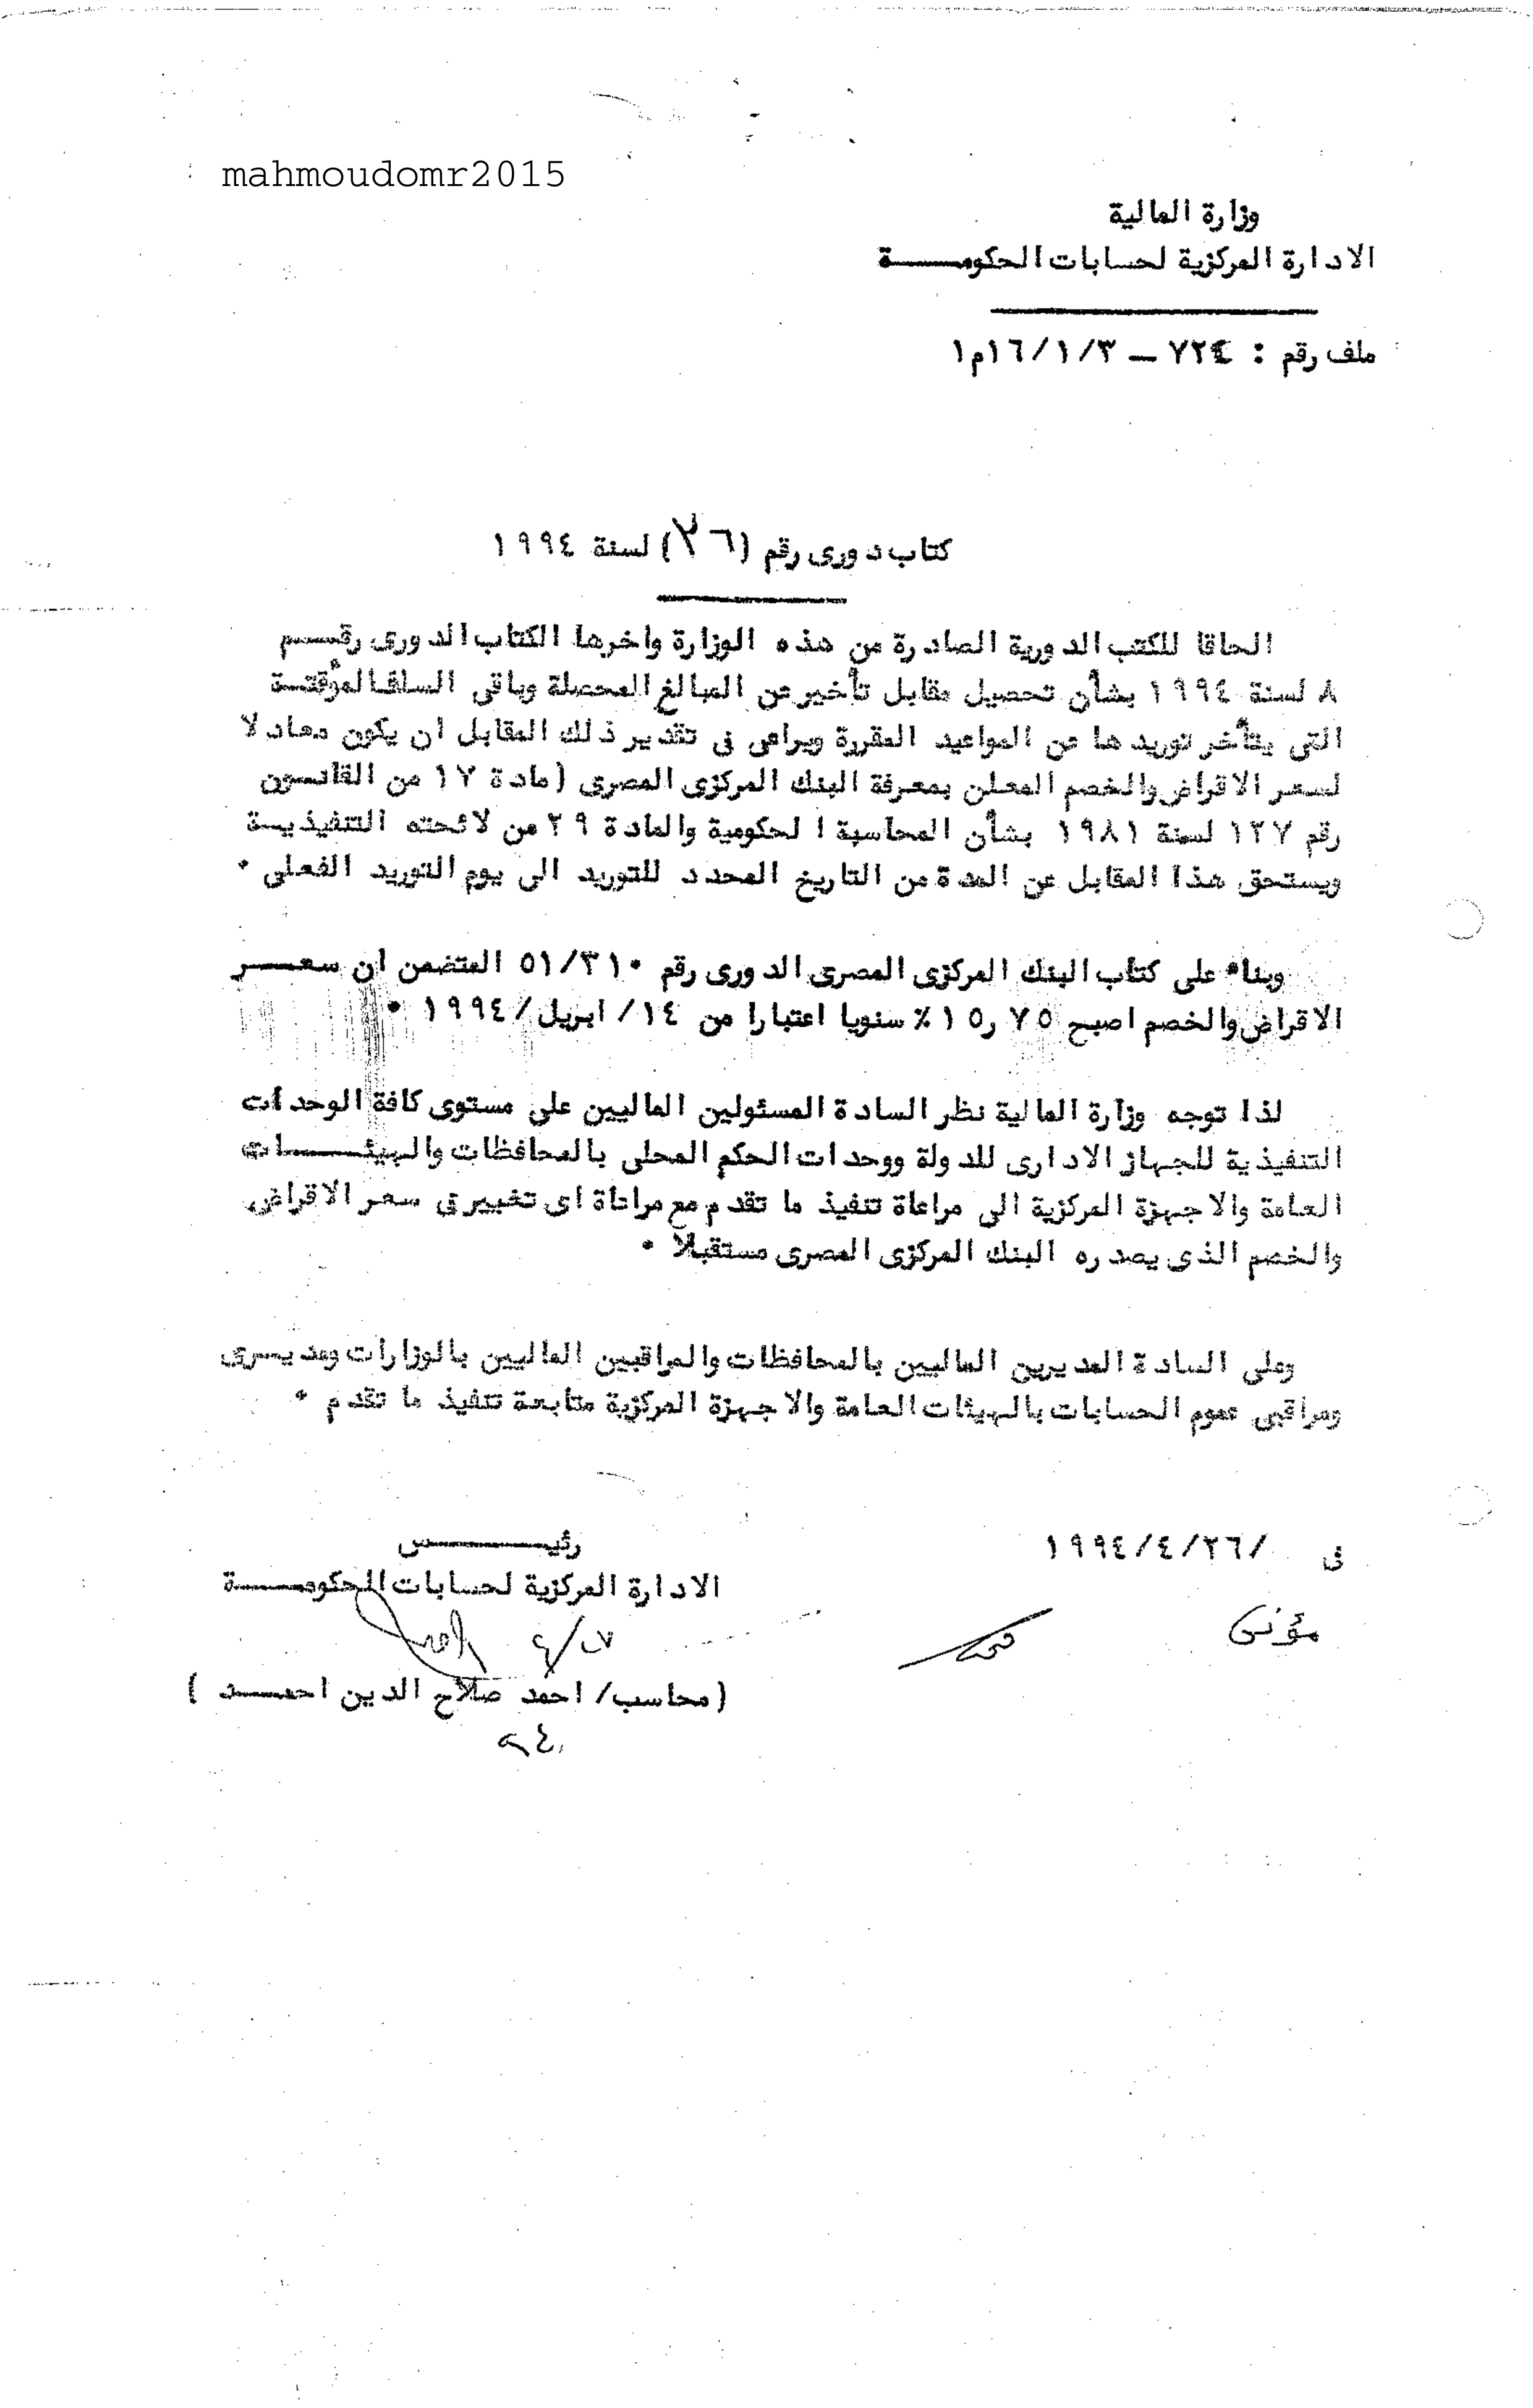 mahmoudomr2015
وزارة المالية
الادارة المركزية لحسابات الحكومــــة
ملف رقم : ٧٢٤ – ١٦/١/٣م١
كتاب دورى رقم (٢٦) لسنة ١٩٩٤
الحاقا للكتب الدورية الصادرة من هذه الوزارة واخرها الكتاب الدورى رقـــم
٨ لسنة ١٩٩٤ بشأن تحصيل مقابل تأخير عن المبالغ المحصلة وباقى السلف المؤقتــة
التى يتأخر توريدها عن المواعيد المقررة ويراعى فى تقدير ذلك المقابل ان يكون معادلا
لسعر الاقراض والخصم المعلن بمعرفة البنك المركزى المصرى (مادة ١٧ من القانــون
رقم ١٢٧ لسنة ١٩٨١ بشأن المحاسبة الحكومية والمادة ٢٩ من لائحته التنفيذيــة
ويستحق هذا المقابل عن المدة من التاريخ المحدد للتوريد الى يوم التوريد الفعلى .
وبناء على كتاب البنك المركزى المصرى الدورى رقم ٥١/٣١٠ المتضمن ان سعـــر
الاقراض والخصم اصبح ٧٥ر١٥ ٪ سنويا اعتبارا من ١٤/ ابريل/ ١٩٩٤ .
لذا توجه وزارة المالية نظر السادة المسئولين الماليين على مستوى كافة الوحدات
التنفيذية للجهاز الادارى للدولة ووحدات الحكم المحلى بالمحافظات والهيئــــات
العامة والاجهزة المركزية الى مراعاة تنفيذ ما تقدم مع مراعاة اى تغيير فى سعر الاقراض
والخصم الذى يصدره البنك المركزى المصرى مستقبلا .
وعلى السادة المديرين الماليين بالمحافظات والمراقبين الماليين بالوزارات ومديــرى
ومراقبى عموم الحسابات بالهيئات العامة والاجهزة المركزية متابعة تنفيذ ما تقدم .
فى /١٩٩٤/٤/٢٦
رئيـــــس
الادارة المركزية لحسابات الحكومــــة
٤/٢٧
(محاسب/ احمد صلاح الدين احمـــد )
٩٤